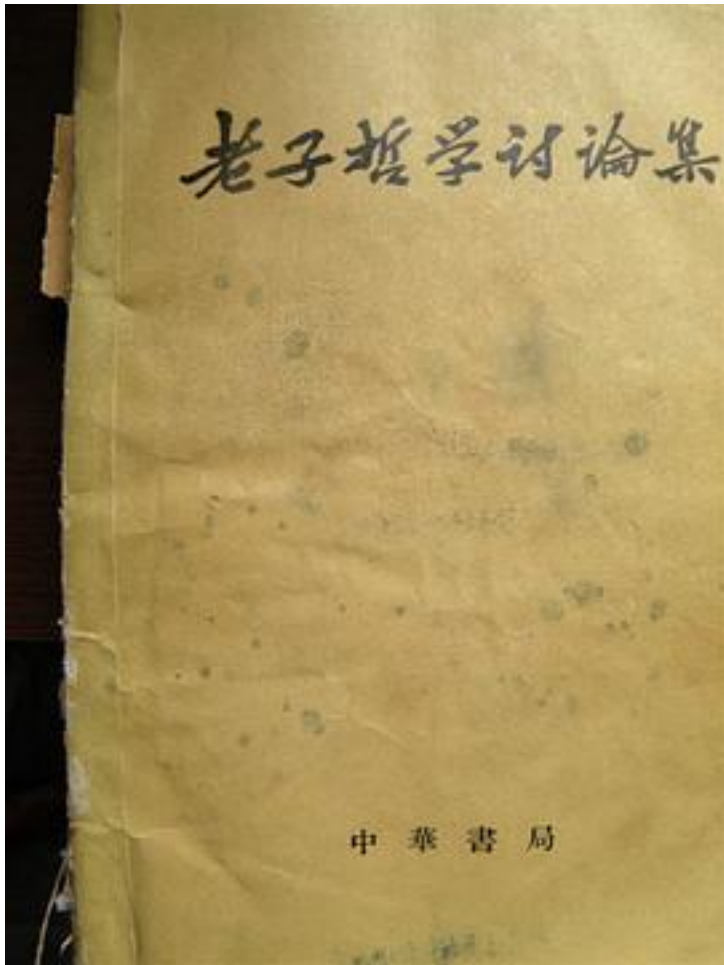 老子哲学讨論集
中華書局